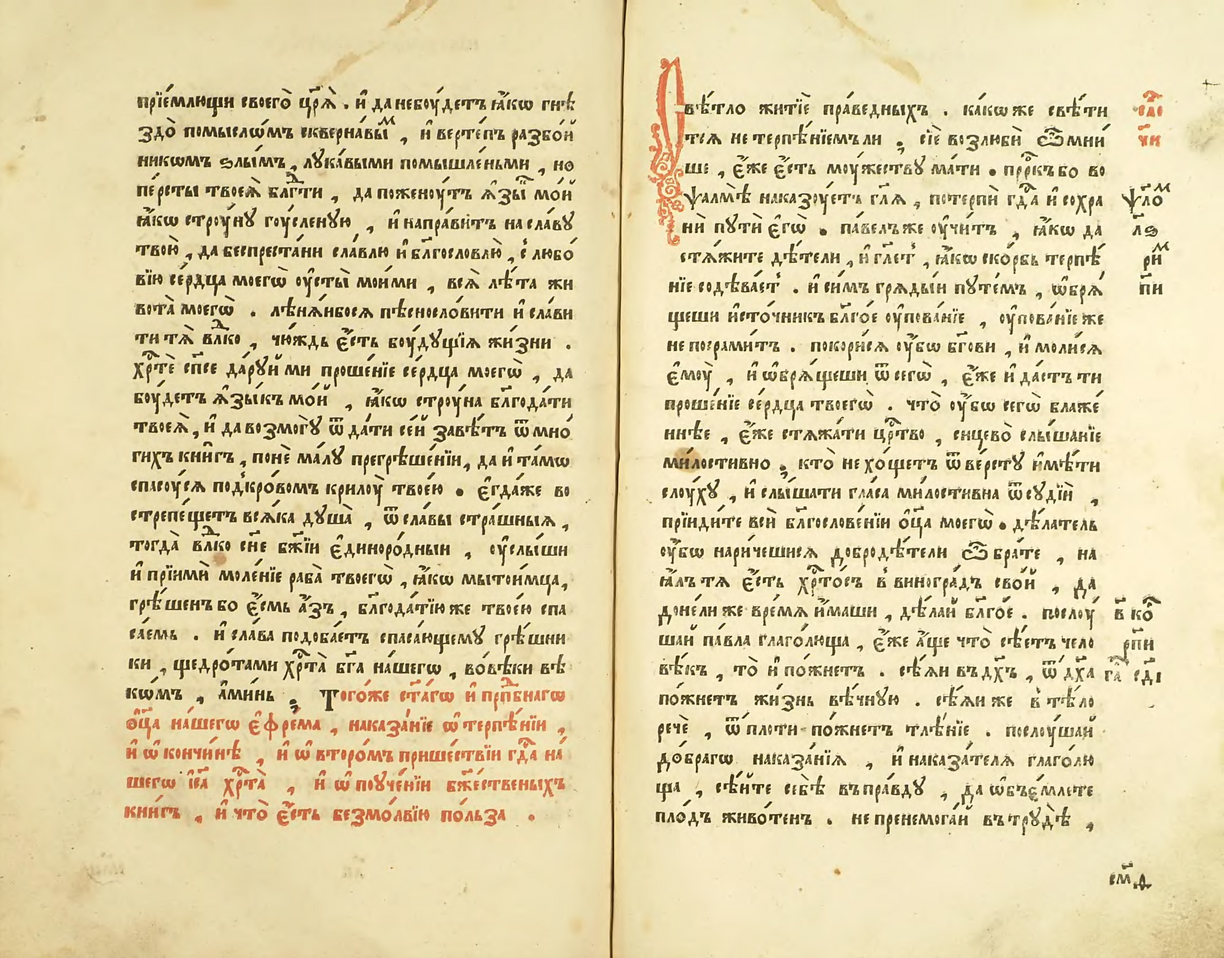 прїе́млющи своегѡ̀ цр҃ѧ̀ . и҆ да небоу́детъ ꙗ҆́кѡ гнѣ
здо̀ помысло́мъ сквернавы́м , и҆ верте́пъ разбо́й
никѡмъ ѕлы́мъ , лука́выми помышле́ньми , но
пе́рсты твоеѧ̀ блг҃ти , да поженоу́тъ ѧ҆зы́ мо́й
ꙗ҆́кѡ строу́нꙋ гоу́сленꙋю , и҆ напра́витъ на сла́вꙋ
твою̀ , да беспреста́ни сла́влю и҆ бл҃гословлю̀ , с̾ любо́
вїю се́рдца моегѡ̀ оу҆сты̀ мои́ми , всѧ̀ лѣ́та жи
вота̀ моегѡ̀ . лѣнѧ́ибосѧ пѣснослови́ти и҆ сла́ви
ти тѧ̀ влⷣко , чю́ждь є҆́сть боу́дꙋщїѧ жи́зни .
хрⷭ҇тѐ сп҃се дару́й ми проше́нїе се́рдца моегѡ̀ , да
боу́детъ ѧ҆зы́къ мо́й , ꙗ҆́кѡ строуна̀ бл҃года́ти
твоеѧ̀ , и҆ да возмогꙋ̀ ѿда́ти се́й завѣ́тъ ѿ мно́
гихъ кни́гъ , понѐ ма́лꙋ прегрѣше́нїи , да и҆ та́мѡ
спасоу́сѧ под̾ кро́вомъ крилоу̀ твое́ю . є҆гда́же во
стрепе́щетъ всѧ́ка дꙋша̀ , ѿ сла́вы стра́шныѧ ,
тогда̀ влⷣко сн҃е бж҃їи є҆диноро́дныи , оу҆слы́ши
и҆ прїимѝ моле́нїе раба̀ твоегѡ̀ , ꙗ҆́кѡ мытои́мца,
грѣ́шенъ бо є҆́смь а҆́зъ , бл҃года́тїю же твое́ю спа
са́емь . и҆ сла́ва подоба́етъ спаса́ющемꙋ грѣ́шни
ки , щедро́тами хрⷭ҇та̀ бг҃а на́шегѡ , во́вѣки вѣ
кѡ́мъ , а҆ми́нь . Тогѡ́же ст҃а́гѡ и҆ прпⷣбнагѡ
ѻ҆ц҃а на́шегѡ є҆фре́ма , наказа́нїе ѡ҆ терпѣ́нїи ,
и҆ ѡ҆ кончи́нѣ , и҆ ѡ҆ второ́мъ прише́ствїи гдⷭ҇а на
шегѡ і҆с҃а хрⷭ҇та̀ , и҆ ѡ҆ поуче́нїи бж҃е́ственыхъ
кни́гъ , и҆ что̀ є҆́сть безмо́лвїю по́льза .
вѣ́тло житїѐ пра́ведныхъ . ка́кѡ же свѣ́ти
тсѧ не терпѣ́нїемъ ли , сїѐ возлюбѝ ѽ мни́
ше , є҆́же є҆́сть моу́жествꙋ ма́ти . прⷪ҇ркъ бо во
ѱалмѣ̀ наказоу́етъ гл҃ѧ , потерпѝ гдⷭ҇а и҆ сохра
нѝ пути̑ є҆гѡ̀ . па́велъ же оу҆чи́тъ , ꙗ҆́кѡ да
стѧ́жите дѣ́тели , и҆ гл҃ет , ꙗ҆́кѡ ско́рбь терпѣ́
нїе содѣ́вает . и҆ си́мъ грѧды́и пꙋте́мъ , ѡ҆брѧ́
щеши и҆сто́чникъ бл҃го́е оу҆пова́нїе , оу҆пова́нїе же
не посрами́тъ . покори́сѧ оу҆́бѡ бг҃ови , и҆ моли́сѧ
є҆моу̀ , и҆ ѡ҆брѧ́щеши ѿ сегѡ̀ , є҆́же и҆ да́стъ ти
проше́нїе се́рдца твоегѡ̀ . что̀ оу҆́бѡ сегѡ̀ блаже́
ннѣе , є҆́же стѧжа́ти црⷭ҇тво , сицево̀ слы́шанїе
ми́лостивно , кто̀ не хо́щетъ ѿве́рстꙋ и҆мѣ́ти
слоу́хꙋ , и҆ слы́шати гла́са ми́лостивна ѿ сꙋдїѝ ,
прїиди́те всѝ бл҃гослове́нїи ѻ҆ц҃а моегѡ̀ . дѣ́латель
оу҆́бѡ нарече́шисѧ доброд́ѣтели ѽ бра́те , на
ꙗ҆́лъ тѧ є҆́сть хрⷭ҇то́съ в̾ виногра́дъ сво́й , да
до́нели же вре́мѧ и҆́маши , дѣ́лай бл҃го́е . послоу́
шай па́вла глаго́люща , є҆́же а҆́ще что̀ сѣ́етъ чело
вѣ́къ , то̀ и҆ пожне́тъ . сѣ́ѧи въ дх҃ъ , ѿ дх҃а
пожне́тъ жи́знь вѣ́чнꙋю . сѣ́ѧи же в̾ тѣ́ло
речѐ , ѿ пло́ти пожне́тъ тлѣ́нїе . послоу́шай
до́брагѡ наказа́нїѧ , и҆ наказа́телѧ глаго́лю
ща , сѣ́йте себѣ̀ въ пра́вдꙋ , да ѡ҆бъе́млете
пло́дъ живо́тенъ . не пренемога́й въ трꙋдѣ̀ ,
ѱло
лѕ
ри
пи
в̾ ко
рпи